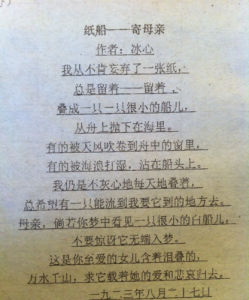 纸船——寄母亲
作者：冰心
我从不肯妄弃了一张纸，
总是留着——留着
叠成一只一只很小的船儿，
从舟上抛下在海里。
有的被天风吹卷到舟中的窗里，
有的被海浪打湿，沾在船头上。
我仍是不灰心地每天地叠着，
总希望有一只能流到我要它到的地方去。
母亲，倘若你梦中看见一只很小的白船儿，
不要惊讶它无端入梦。
这是你至爱的女儿含着泪叠的，
万水千山，求它载着她的爱和悲哀归去。
一九二三年八月二十七日